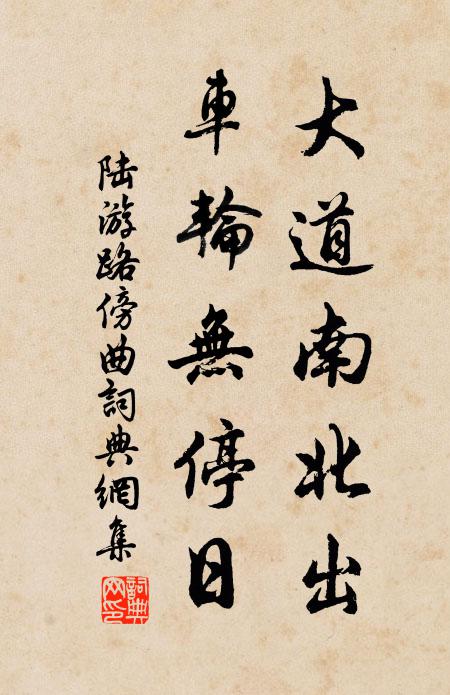 大道南北出
車輪無停日
陆游路傍曲詞典網集
詞典網印